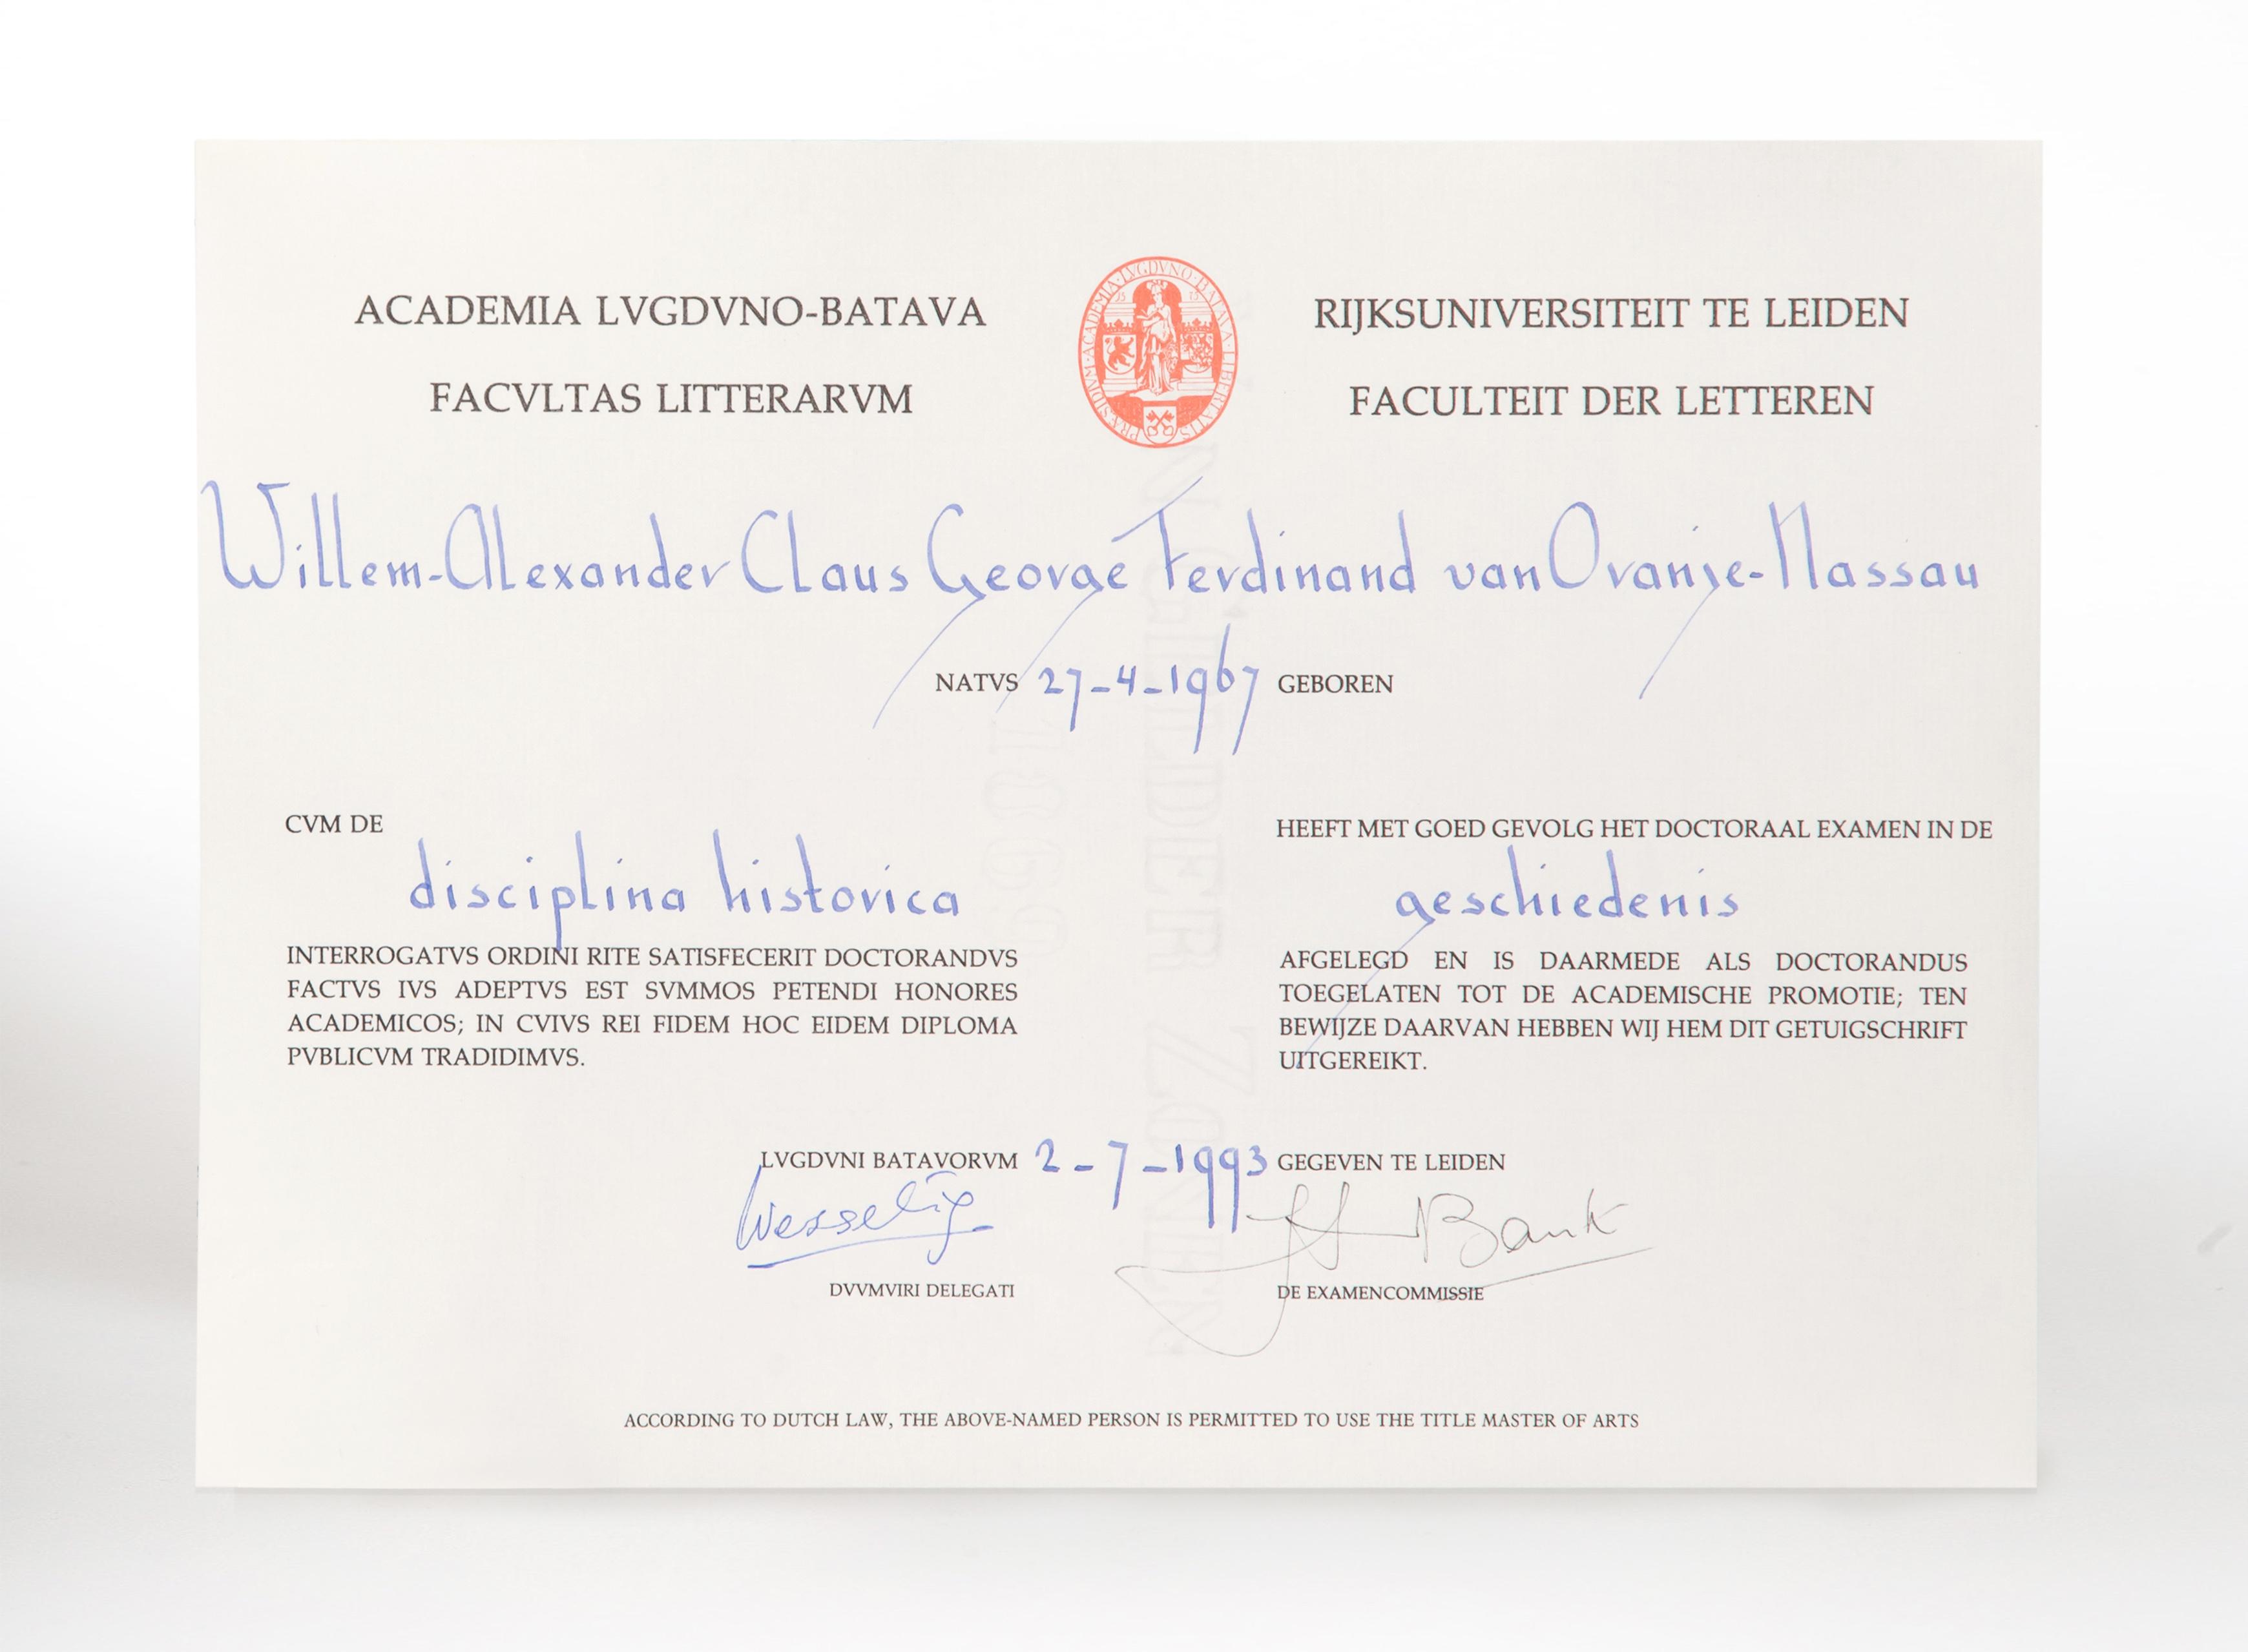 ACADEMIA LVGDVNO-BATAVA
FACVLTAS LITTERARVM
ACADEMIA·LVGDVNO·BATAVA·LIBERTATIS·PRÆSIDIVM
RIJKSUNIVERSITEIT TE LEIDEN
FACULTEIT DER LETTEREN
Willem-Alexander Claus George Ferdinand van Oranje-Nassau
NATVS 27-4-1967 GEBOREN
CVM DE
disciplina historica
INTERROGATVS ORDINI RITE SATISFECERIT DOCTORANDVS
FACTVS IVS ADEPTVS EST SVMMOS PETENDI HONORES
ACADEMICOS; IN CVIVS REI FIDEM HOC EIDEM DIPLOMA
PVBLICVM TRADIDIMVS.
HEEFT MET GOED GEVOLG HET DOCTORAAL EXAMEN IN DE
geschiedenis
AFGELEGD EN IS DAARMEDE ALS DOCTORANDUS
TOEGELATEN TOT DE ACADEMISCHE PROMOTIE; TEN
BEWIJZE DAARVAN HEBBEN WIJ HEM DIT GETUIGSCHRIFT
UITGEREIKT.
LVGDVNI BATAVORVM 2-7-1993 GEGEVEN TE LEIDEN
Wesseling
Bank
DVVMVIRI DELEGATI
DE EXAMENCOMMISSIE
ACCORDING TO DUTCH LAW, THE ABOVE-NAMED PERSON IS PERMITTED TO USE THE TITLE MASTER OF ARTS